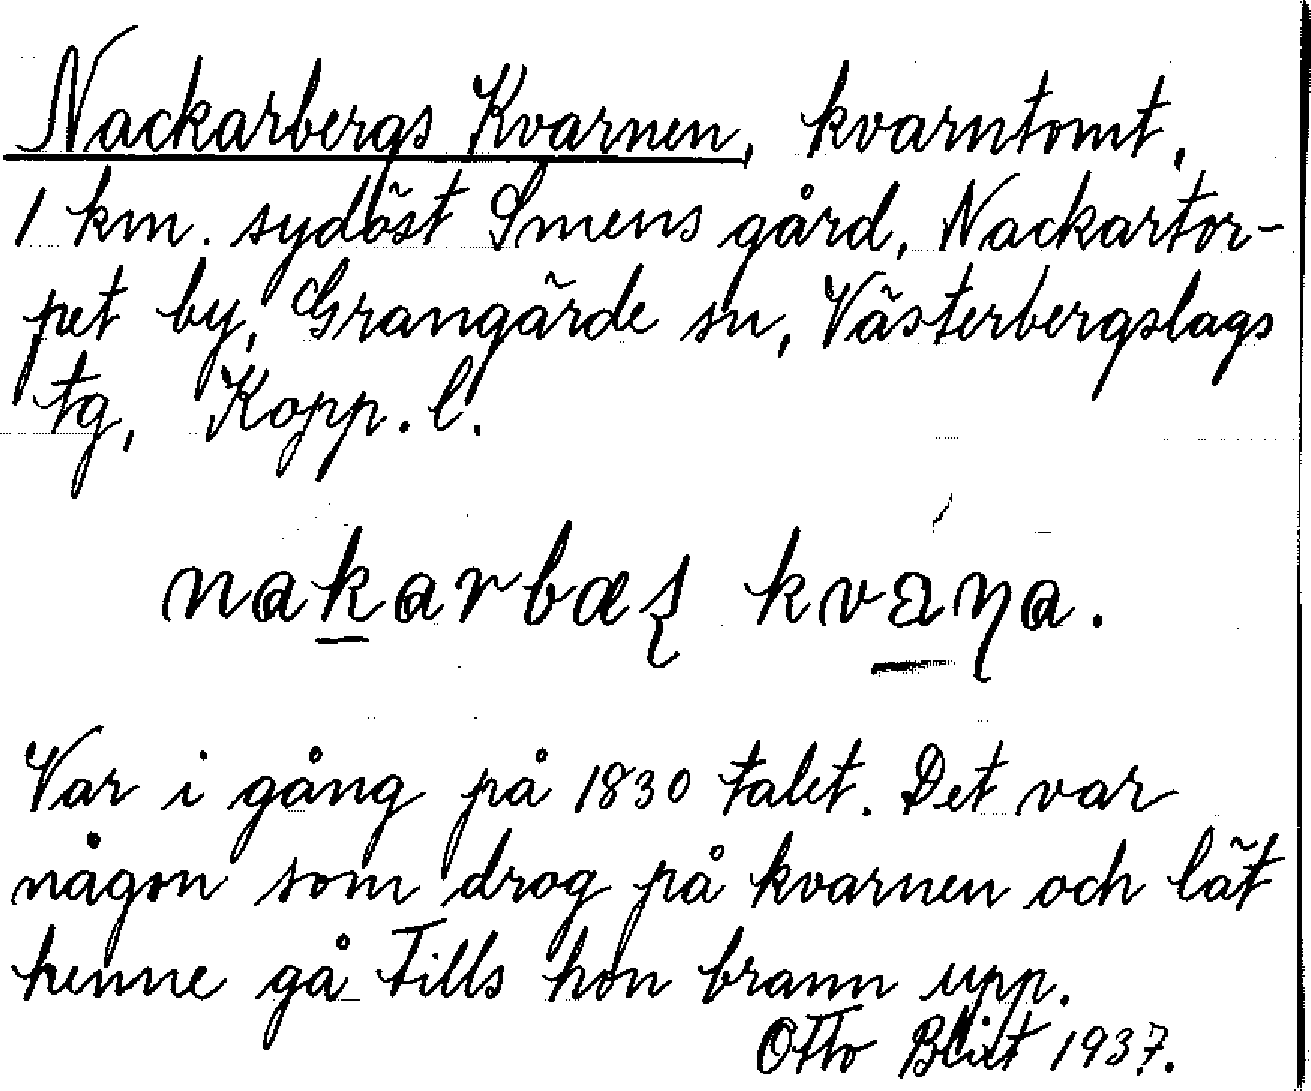 Nackarbergs Kvarnen, kvarntomt,
1 km. sydöst Smens gård, Nackartor-
pet by, Grangärde sn, Västerbergslags
tg, Kopp. l.
nakarbæʂ kvaɳa.
Var i gång på 1830 talet. Det var
någon som drog på kvarnen och lät
henne gå tills hon brann upp.
Otto Blixt 1937.